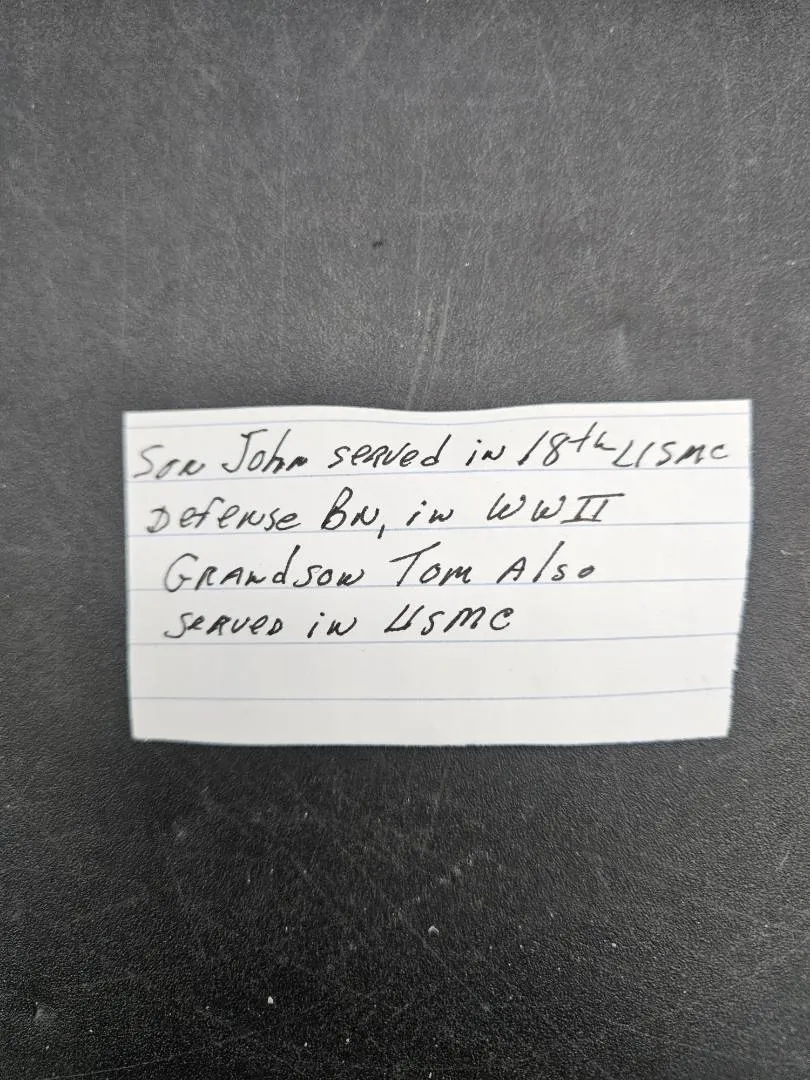 Son John served in 18th USMC
Defense BN, in WWII
Grandson Tom Also
served in USMC